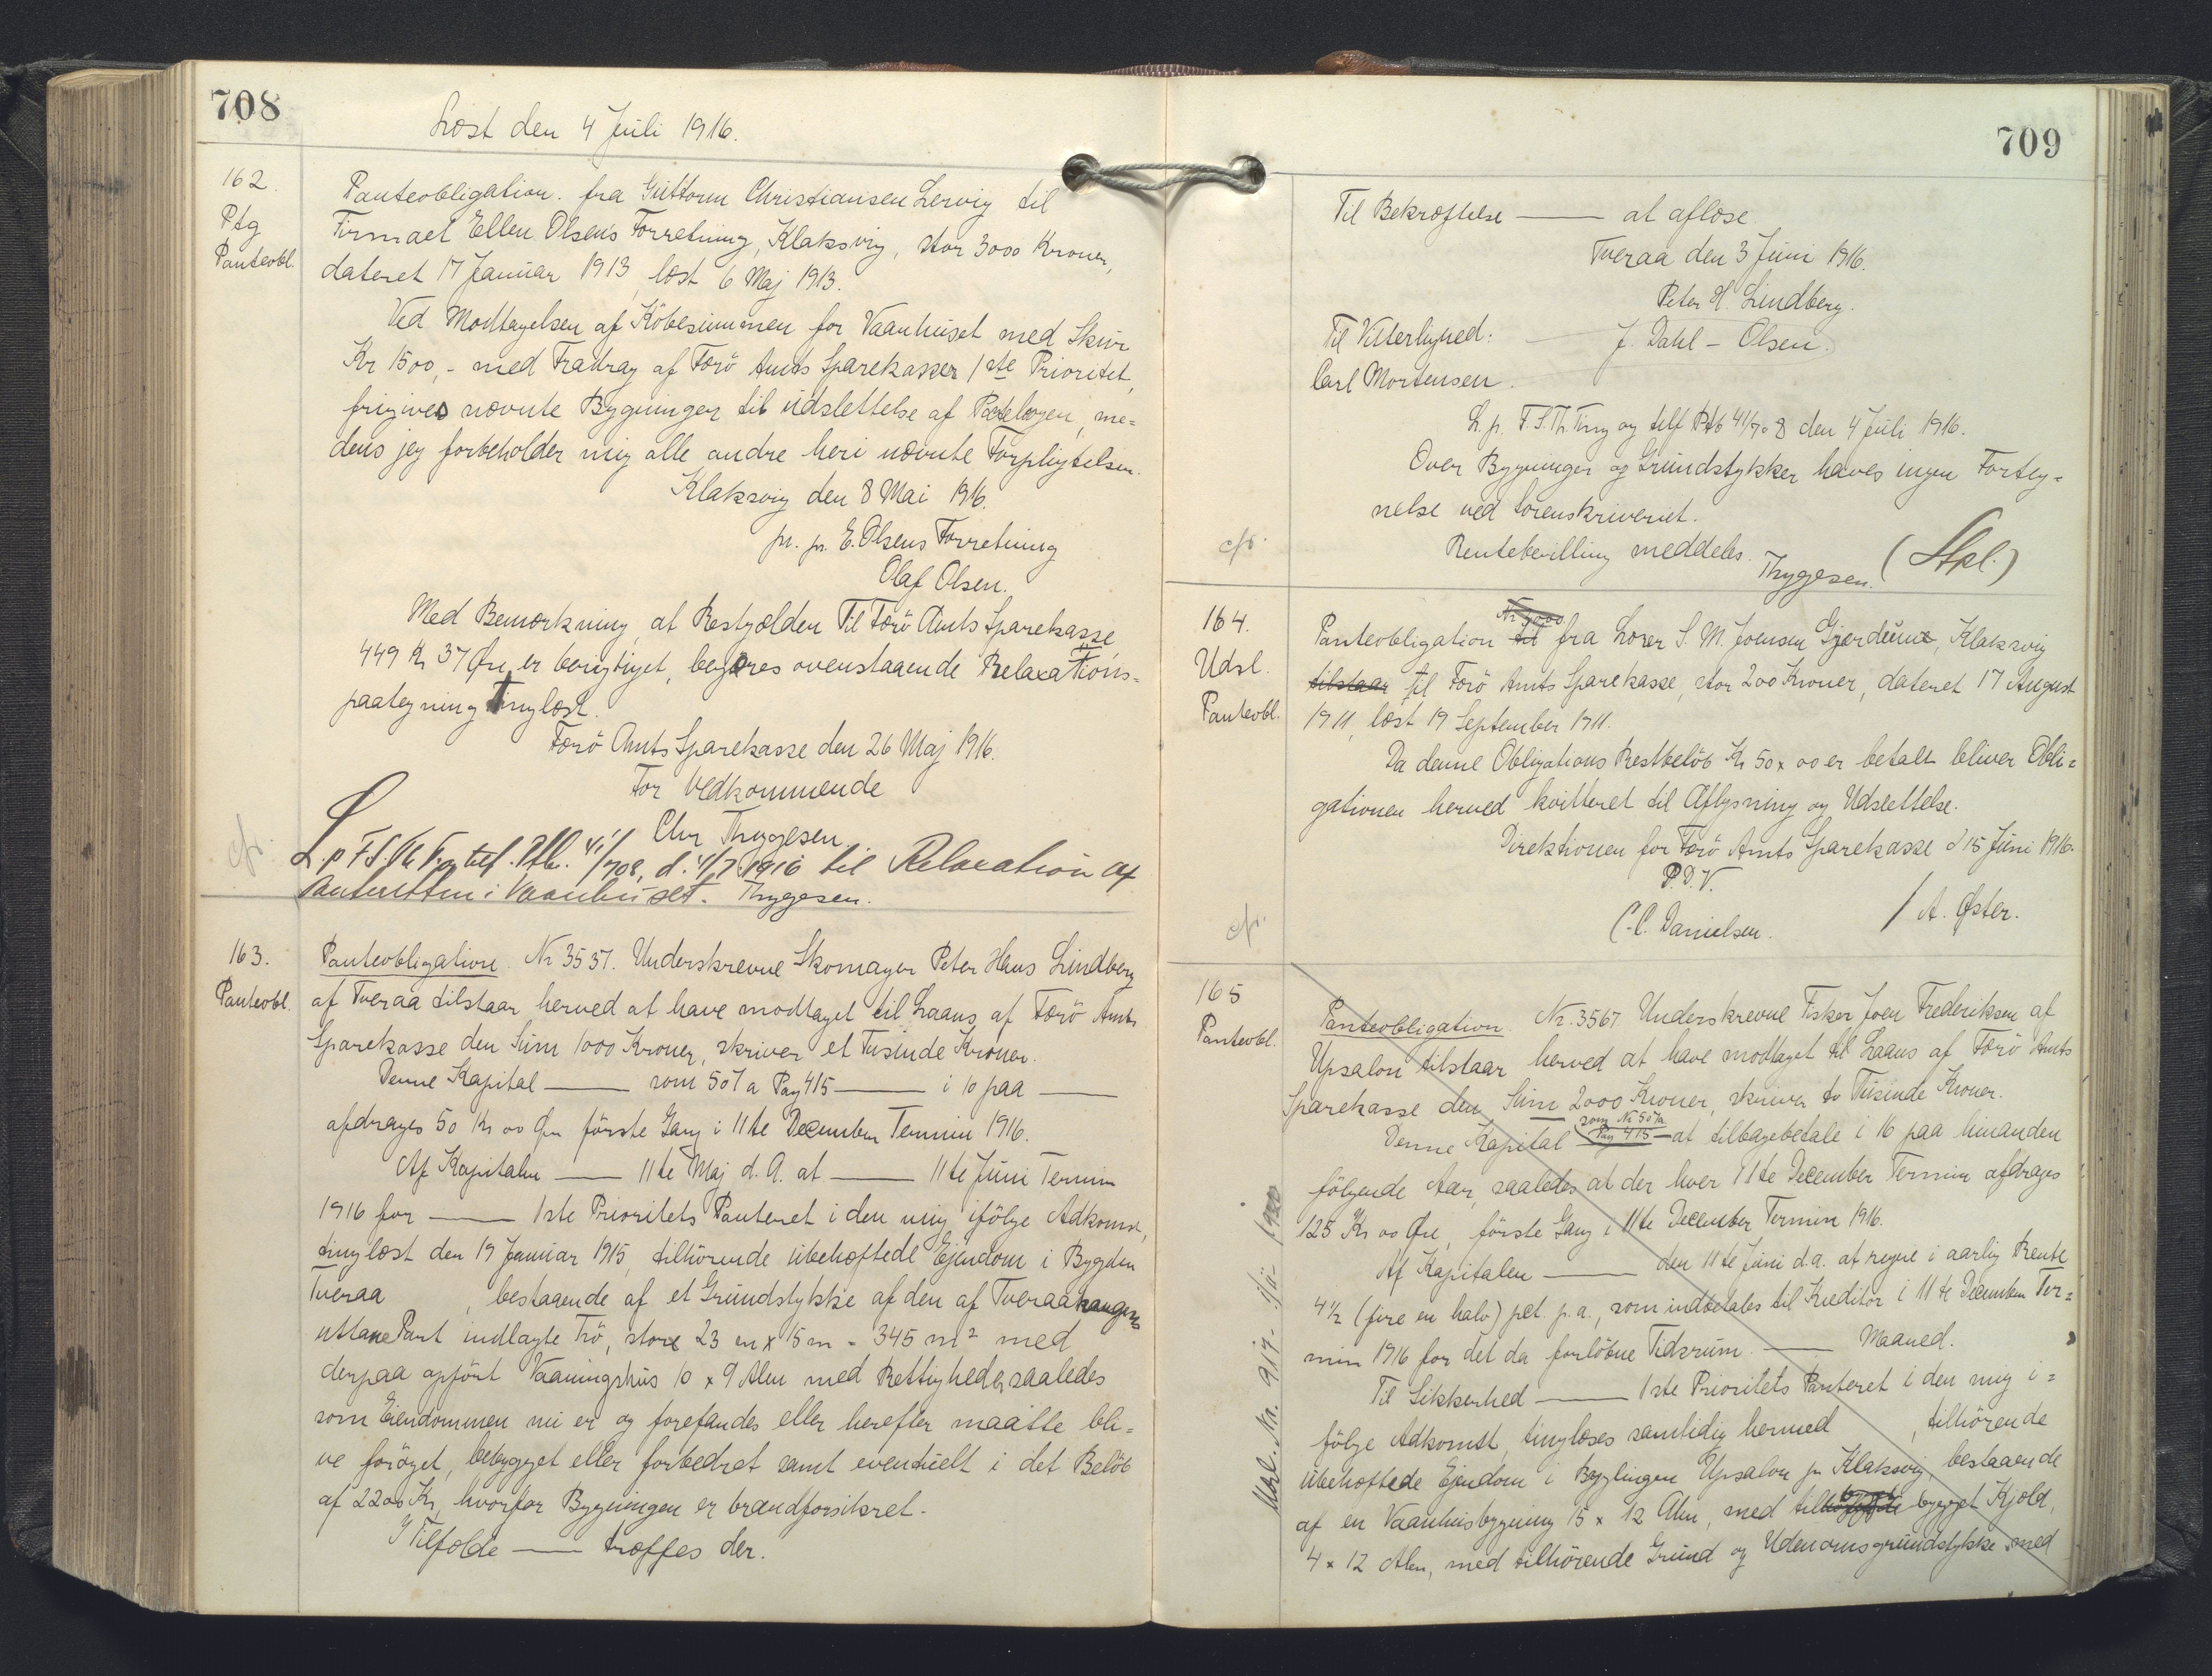 708
Læst den 4 Juli 1916.
162.
Ptg
Panteobl.
Panteobligation. fra Guttorm Christiansen Lervig til
Firmaet Ellen Olsens Forretning, Klaksvig, stor 3000 Kroner,
dateret 17 Januar 1913, læst 6 Maj 1913.
Ved Modtagelsen af Köbesummen for Vaanhuset med Skur
Kr 1500,- med Fradrag af Færö Amts Sparekasses 1ste Prioritet,
frigives nævnte Bygninger til udslettelse af Pantebogen, me=
dens jeg forbeholder mig alle andre heri nævnte Forpligtelser.
Klaksvig den 8 Mai 1916.
pr. pr. E. Olsens Forretning
Olaf Olsen.
Med Bemærkning, at Restgælden Til Færö Amts Sparekasse,
449 Kr 37 Øre, er berigtiget, begæres ovenstaaende Relaxations=
paategning Tinglæst.
Færö Amts Sparekasse den 26 Maj 1916.
For Vedkommende
Chr Thygesen.
L. p F.S.Th T. og tilf. Ptb. 41/708, d. 4/7 1916 til Relaxation af
Panteretten i Vaanhuset. Thygesen.
cfr.
163.
Panteobl.
Panteobligation. Nr 3537. Underskrevne Skomager Peter Hans Lindberg
af Tveraa tilstaar herved at have modtaget til Laans af Færö Amts
Sparekasse den Sum 1000 Kroner, skriver et Tusinde Kroner.
Denne Kapital —— som 507 a Pag 415 —— i 10 paa ——
afdrages 50 Kr 00 Øre förste Gang i 11te December Termin 1916.
Af Kapitalen —— 11te Maj d. A. at —— 11te Juni Termin
1916 for —— 1ste Prioritets Panteret i den mig ifölge Adkomst,
tinglæst den 19 Januar 1915, tilhörende ubehæftede Ejendom i Bygden
Tveraa , bestaaende af et Grundstykke af den af Tveraahaugens
uttane Part indlagte Trö, store 23 m x 15 m = 345 m² med
derpaa opfört Vaaningshus 10 x 9 Alen med Rettigheder saaledes
som Eiendommen nu er og forefandes eller herefter maatte bli=
ve foröget, bebygget eller forbedret samt eventuelt i det Belöb
af 2200 Kr, hvorfor Bygningen er brandforsikret.
I Tilfælde —— træffes der.
709
Til Bekræftelse —— at aflæse
Tveraa den 3 Juni 1916.
Peter H. Lindberg.
Til Vitterlighed:
J. Dahl - Olsen.
Carl Mortensen.
L. p. F.S.Th. Ting og tilf Ptb 41/708 den 4 Juli 1916.
Over Bygninger og Grundstykker haves ingen Forteg=
nelse ved Sorenskriveriet.
Rentebevilling meddeles.
Thygesen. (Stpl.)
cfr.
164.
Udsl.
Panteobl.
Panteobligation fra Lærer S. M. Joensen Gjerdeum, Klaksvig
tilstaar til Færö Amts Sparekasse, stor 200 Kroner, dateret 17 August
1911, læst 19 September 1911.
Da denne Obligations Restbelöb Kr 50 x 00 er betalt bliver Obli=
gationen herved kvitteret til Aflysning og Udslettelse.
Direktionen for Færö Amts Sparekasse d 15 Juni 1916.
P.D.V.
C.C. Danielsen. / A. Øster.
cfr.
165
Panteobl.
Panteobligation. Nr. 3567. Underskrevne Fisker Joen Frederiksen af
Upsalon tilstaar herved at have modtaget til Laans af Færö Amts
Sparekasse den Sum 2000 Kroner, skriver to Tusinde Kroner.
som Nr 507a
Denne Kapital Pag 415 — at tilbagebetale i 16 paa hinanden
fölgende Aar, saaledes at der hver 11te December Termin afdrages
125 Kr 00 Øre, förste Gang i 11te December Termin 1916.
Af Kapitalen —— den 11te Juni d.a. at regne i aarlig Rente
4½ (fire en halv) pct. p.a., som indbetales til Kreditor i 11te December Ter=
min 1916 for det da forlöbne Tidsrum. —— Maaned.
Til Sikkerhed —— 1ste Prioritets Panteret i den mig i=
fölge Adkomst, tinglæses samtidig hermed , tilhörende
ubehæftede Ejendom i Bygslingen Upsalon pr Klaksvig, bestaaende
af en Vaanhusbygning 15 x 12 Alen, med til bygget Kjold,
4 x 12 Alen, med tilhörende Grund og Udenomsgrundstykke med